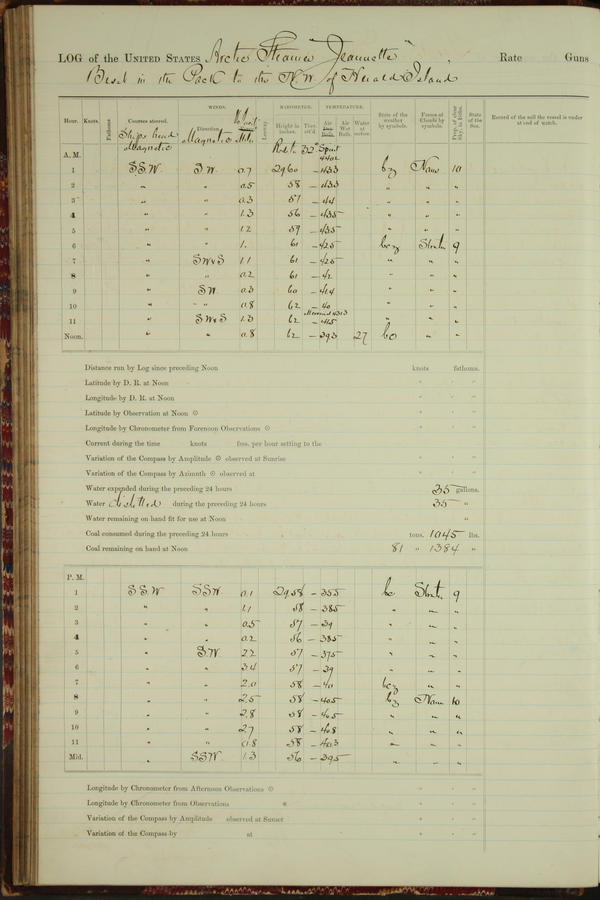 LOG of the UNITED STATES Arctic Steamer "Jeannette", Rate Guns
Beset in the Pack to the N.W. of Herald Island
WINDS. BAROMETER. TEMPERATURE.
Hour. Knots. Fathoms Courses steered. Direction Leeway Height in inches. Ther. att'd Air Dry Bulb. Air Wet Bulb. Water at surface. State of the weather by symbols. Forms of Clouds by symbols. State of the Sea. Record of the sail the vessel is under at end of watch.
Ships head Magnetic Magnetic
A.M. Red. to 32° Spirit
1 S.S.W. S.W. 0.7 29.60 -43.3 bz None 10
2 " " 0.5 58 -43.3 " " "
3 " " 0.3 57 -44 " " "
4 " " 1.3 56 -43.5 " " "
5 " " 1.2 59 -43.5 " " "
6 " " 1. 61 -42.5 bcz Stratus 9
7 " SWxS 1.1 61 -42.5 " " "
8 " " 0.2 61 -42 " " "
9 " SW. 0.3 60 -41.4 " " "
10 " " 0.8 62 -40 " " "
11 " SWxS 1.3 62 -41.5 " " "
Noon. " " 0.8 62 -39.3 27 bc " "
Distance run by Log since preceding Noon knots fathoms.
Latitude by D. R. at Noon
Longitude by D. R. at Noon
Latitude by Observation at Noon
Longitude by Chronometer from Forenoon Observations
Current during the time knots fms. per hour setting to the
Variation of the Compass by Amplitude observed at Sunrise
Variation of the Compass by Azimuth observed at
Water expended during the preceding 24 hours 35 gallons.
Water distilled during the preceding 24 hours 35 "
Water remaining on hand fit for use at Noon "
Coal consumed during the preceding 24 hours tons. 1045 lbs.
Coal remaining on hand at Noon 81 " 1384 "
P. M.
1 S.S.W. SSW. 0.1 29.58 -35.5 bc Stratus 9
2 " " 1.1 58 -38.5 " " "
3 " " 0.5 57 -39 " " "
4 " " 0.2 56 -38.5 " " "
5 " S.W. 2.2 57 -37.5 " " "
6 " " 3.4 57 -39 " " "
7 " " 2.0 58 -40 bcz " "
8 " " 2.5 58 -40.5 bz None 10
9 " " 2.8 58 -40.5 " " "
10 " " 2.7 58 -40.8 " " "
11 " " 0.8 58 -40.3 " " "
Mid. " SSW. 1.3 56 -39.5 " " "
Longitude by Chronometer from Afternoon Observations
Longitude by Chronometer from Observations
Variation of the Compass by Amplitude observed at Sunset
Variation of the Compass by at